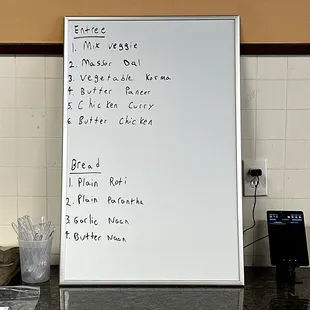 Entree
1. Mix veggie
2. Massor Dal
3. Vegetable Korma
4 Butter Paneer
5. Chicken Curry
6 Butter Chicken
Bread
1. Plain Roti
2. Plain Parantha
3. Garlic Naan
4. Butter Naan